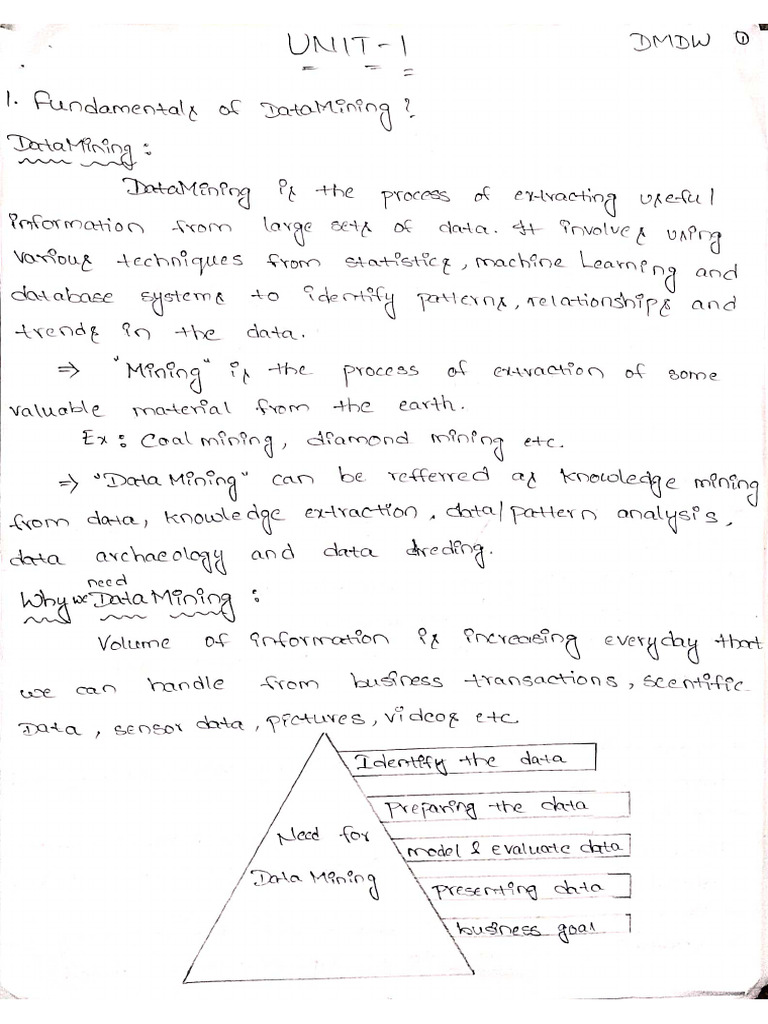 UNIT-1
DMDW ①
1. Fundamentals of DataMining?
DataMining:
DataMining is the process of extracting useful
information from large sets of data. It involves using
various techniques from statistics, machine Learning and
database systems to identify patterns, relationships and
trends in the data.
⇒ "Mining" is the process of extraction of some
valuable material from the earth.
Ex: Coal mining, diamond mining etc.
⇒ "Data Mining" can be refferred as knowledge mining
from data, knowledge extraction, data/pattern analysis,
data archaeology and data dreding.
Why we need Data Mining:
Volume of information is increasing everyday that
we can handle from business transactions, scentific
Data, sensor data, pictures, videos etc.
Identify the data
preparing the data
Need for
model & evaluate data
Data Mining
presenting data
business goal